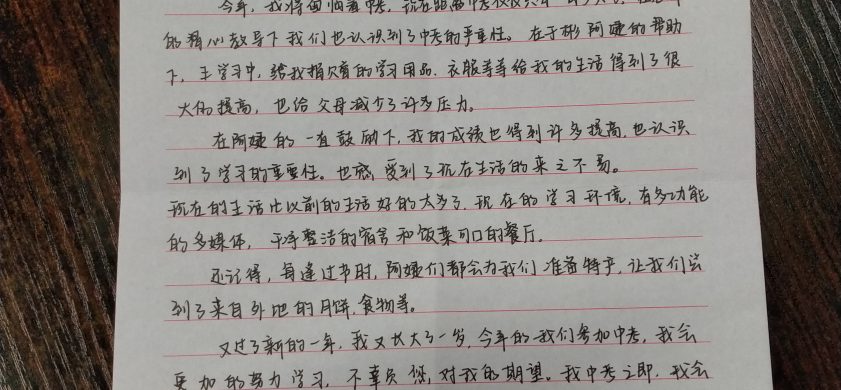 今年，我将面临着中考，现在距离中考仅仅只有
的精心教导下我们也认识到了中考的严重性。在于彬阿婕的帮助
下，王学习中，给我捐赠的学习用品、衣服等等给我的生活得到了很
大的提高，也给父母减少了许多压力。
在阿婕的一直鼓励下，我的成绩也得到许多提高，也认识
到了学习的重要性。也感受到了玩在生活的来之不易。
现在的生活比以前的生活好的太多了，现在的学习环境，有多功能
的多媒体，干净整洁的宿舍和饭菜可口的餐厅。
还记得，每逢过节时，阿婕们都会为我们准备特产，让我们尝
到了来自外地的月饼、食物等。
又过了新的一年，我又长大了一岁，今年的我们参加中考，我会
更加的努力学习，不辜负您，对我的期望。我中考之即，我会